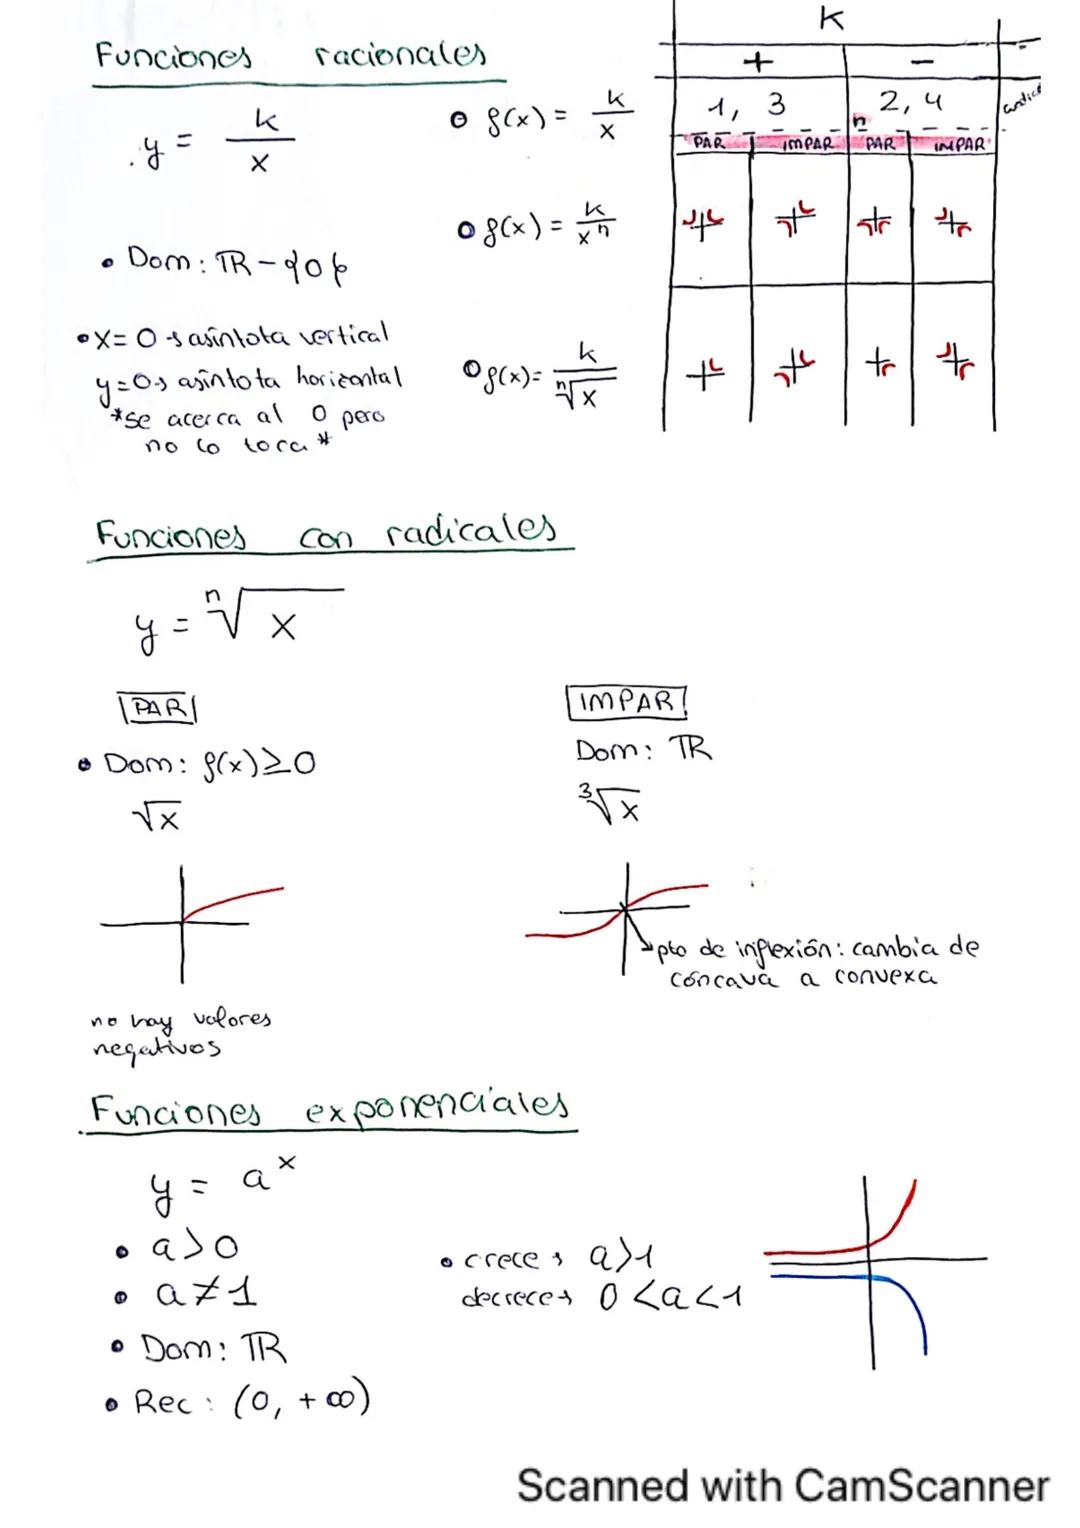 Funciones racionales
y = k/x
• Dom: ℝ - {0}
• x = 0 → asíntota vertical
y = 0 → asíntota horizontal
*se acerca al 0 pero
no lo toca*
o f(x) = k/x
o f(x) = k/xⁿ
o f(x) = k/ⁿ√x
K
+ -
1, 3 2, 4
n
PAR IMPAR PAR IMPAR
Funciones con radicales
y = ⁿ√x
PAR
• Dom: f(x) ≥ 0
√x
no hay valores
negativos
IMPAR
Dom: ℝ
³√x
pto de inflexión: cambia de
cóncava a convexa
Funciones exponenciales
y = aˣ
• a > 0
• a ≠ 1
• Dom: ℝ
• Rec: (0, +∞)
• crece → a > 1
decrece → 0 < a < 1
Scanned with CamScanner